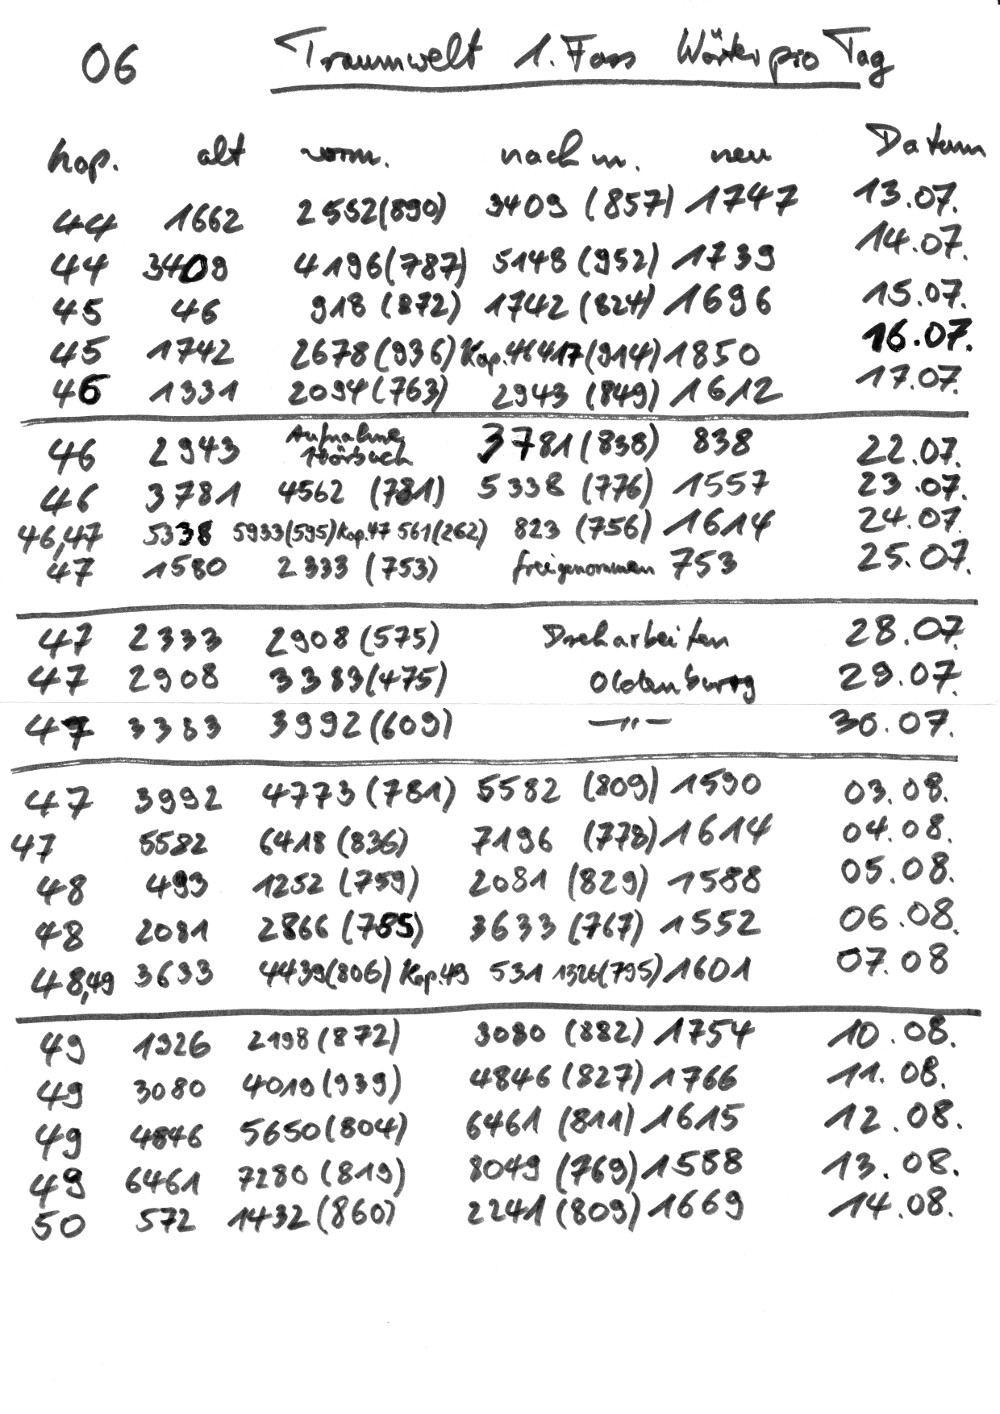 06 Traumwelt 1. Fass Wörter pro Tag
Kap. alt vorm. nachm. neu Datum
44 1662 2552(890) 3409 (857) 1747 13.07.
44 3409 4196(787) 5148 (952) 1739 14.07.
45 46 918 (872) 1742 (824) 1696 15.07.
45 1742 2678(936) Kap.46 417(914) 1850 16.07.
46 1331 2094(763) 2943 (849) 1612 17.07.
46 2943 Aufnahme Hörbuch 3781(838) 838 22.07.
46 3781 4562 (781) 5338 (776) 1557 23.07.
46,47 5338 5933(595) Kap.47 561(262) 823 (756) 1614 24.07.
47 1580 2333 (753) freigenommen 753 25.07.
47 2333 2908 (575) Dreharbeiten 28.07.
47 2908 3383(475) Oldenburg 29.07.
47 3383 3992(609) —"— 30.07.
47 3992 4773 (781) 5582 (809) 1590 03.08.
47 5582 6418 (836) 7196 (778) 1614 04.08.
48 493 1252 (759) 2081 (829) 1588 05.08.
48 2081 2866 (785) 3633 (767) 1552 06.08.
48,49 3633 4439(806) Kap.49 531 1326(795) 1601 07.08
49 1326 2198 (872) 3080 (882) 1754 10.08.
49 3080 4019 (939) 4846 (827) 1766 11.08.
49 4846 5650(804) 6461 (811) 1615 12.08.
49 6461 7280 (819) 8049 (769) 1588 13.08.
50 572 1432 (860) 2241 (809) 1669 14.08.